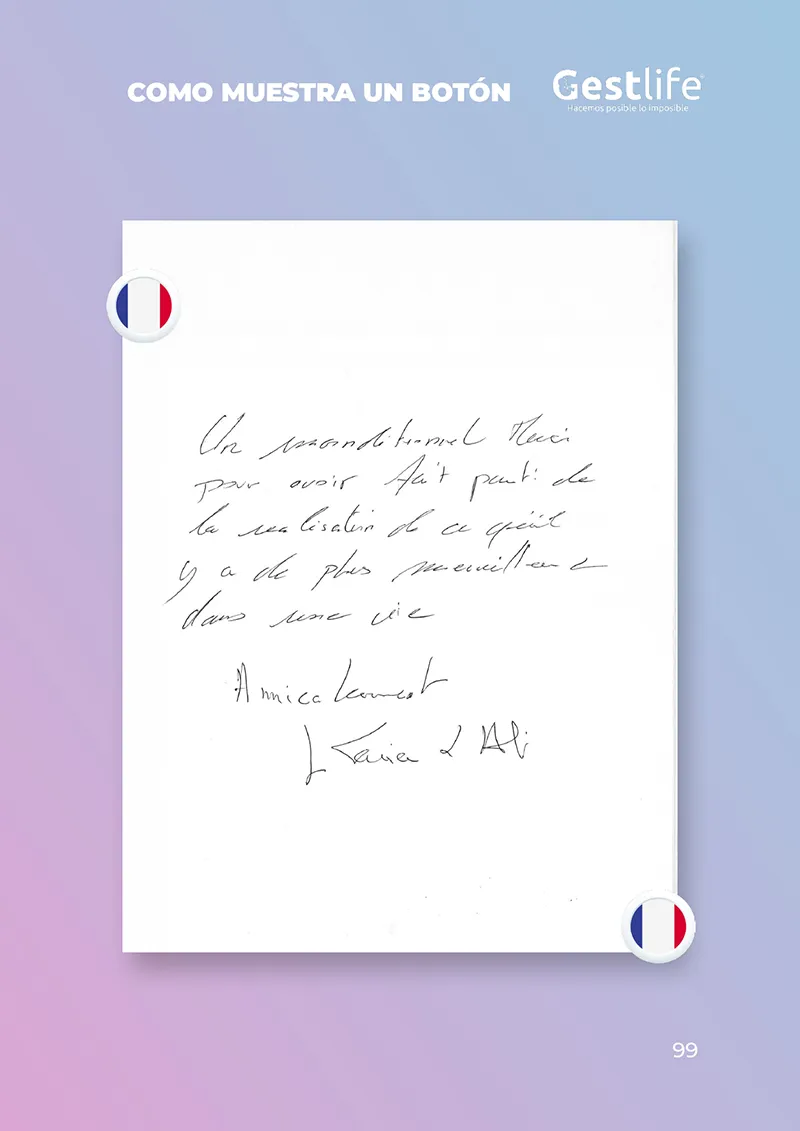 COMO MUESTRA UN BOTÓN
Gestlife
Hacemos posible lo imposible
Un inconditionnel Merci
pour avoir fait parti de
la realisation de ce qu'il
y a de plus merveilleux
dans une vie
Amicalement
& Ali
99